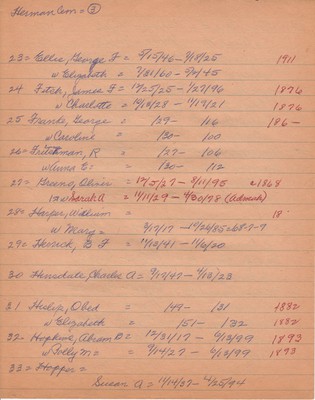 Herman Cem = ③
23 = Ellis, George F = 5/15/46 - 9/18/25 1911
w Elizabeth = 7/31/60 - 9/4/45
24 Fitch, James F = 1/25/25 - 1/27/96 1876
w Charlotte = 10/12/28 - 11/19/21 1876
25 Frands, George = /29 - /16 186-
w Caroline /30 - /00
26 = Fritchman, R = /27 - /06
w Anna E: = /30 - /12
27 = Greeno, Oliver = 10/5/27 - 8/11/95 c1868
1st w Sarah A = 11/11/29 - 4/30/78
28 = Harper, William = 18
w Mary =
29 = Herrick, B F = 11/12/41 - 1/6/20
30 Hinsdale, Charles A = 9/17/47 - 4/18/23
31 Hulix, Obed = /49 - /31 1882
w Elizabeth = /51 - /32 1882
32 - Hopkins, Abram B = 12/31/17 - 4/13/99 1893
w Polly M = 9/14/27 - 6/13/99 1893
33 = Hopper =
Susan A = 1/14/37 - 4/25/94